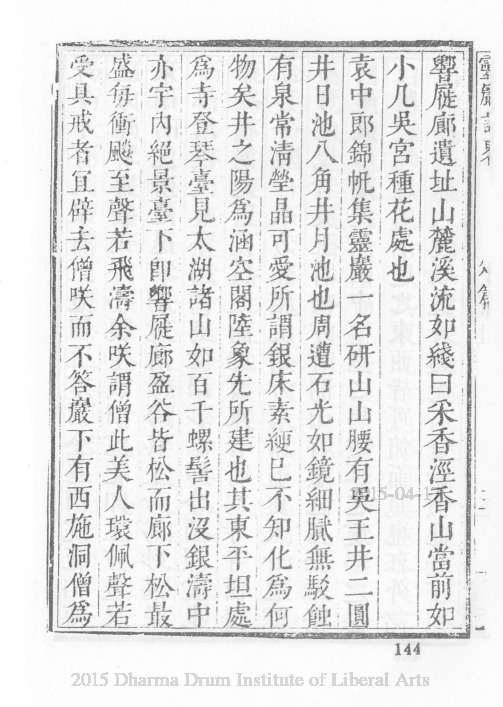 響屧廊遺址山麓溪流如綫曰采香涇香山當前如
小几吳宮種花處也
袁中郎錦帆集靈巖一名研山山腰有吳王井二圓
井日池八角井月池也周遭石光如鏡細膩無駁蝕
有泉常清瑩晶可愛所謂銀床素綆已不知化為何
物矣井之陽為涵空閣陸象先所建也其東平坦處
為寺登琴臺見太湖諸山如百千螺髻出沒銀濤中
亦宇內絕景臺下卽響屧廊盈谷皆松而廊下松最
盛每衝飈至聲若飛濤余咲謂僧此美人環佩聲若
受具戒者宜辟去僧咲而不答巖下有西施洞僧為
144
2015 Dharma Drum Institute of Liberal Arts